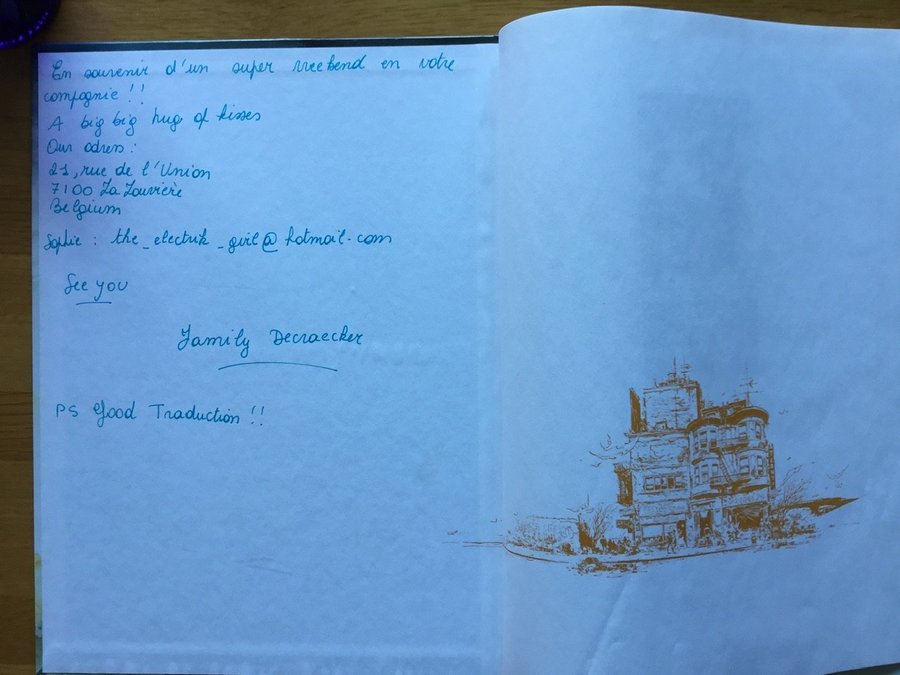 En souvenir d'un super weekend en votre
compagnie !!
A big big hug of kisses
Our adress :
21, rue de l'Union
7100 La Louvière
Belgium
Sophie : the_electrik_girl@hotmail.com
See you
Family Decraecker
PS Good Traduction !!